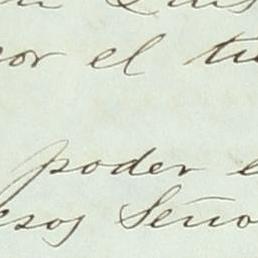 or el tu
poder e
esos Seño